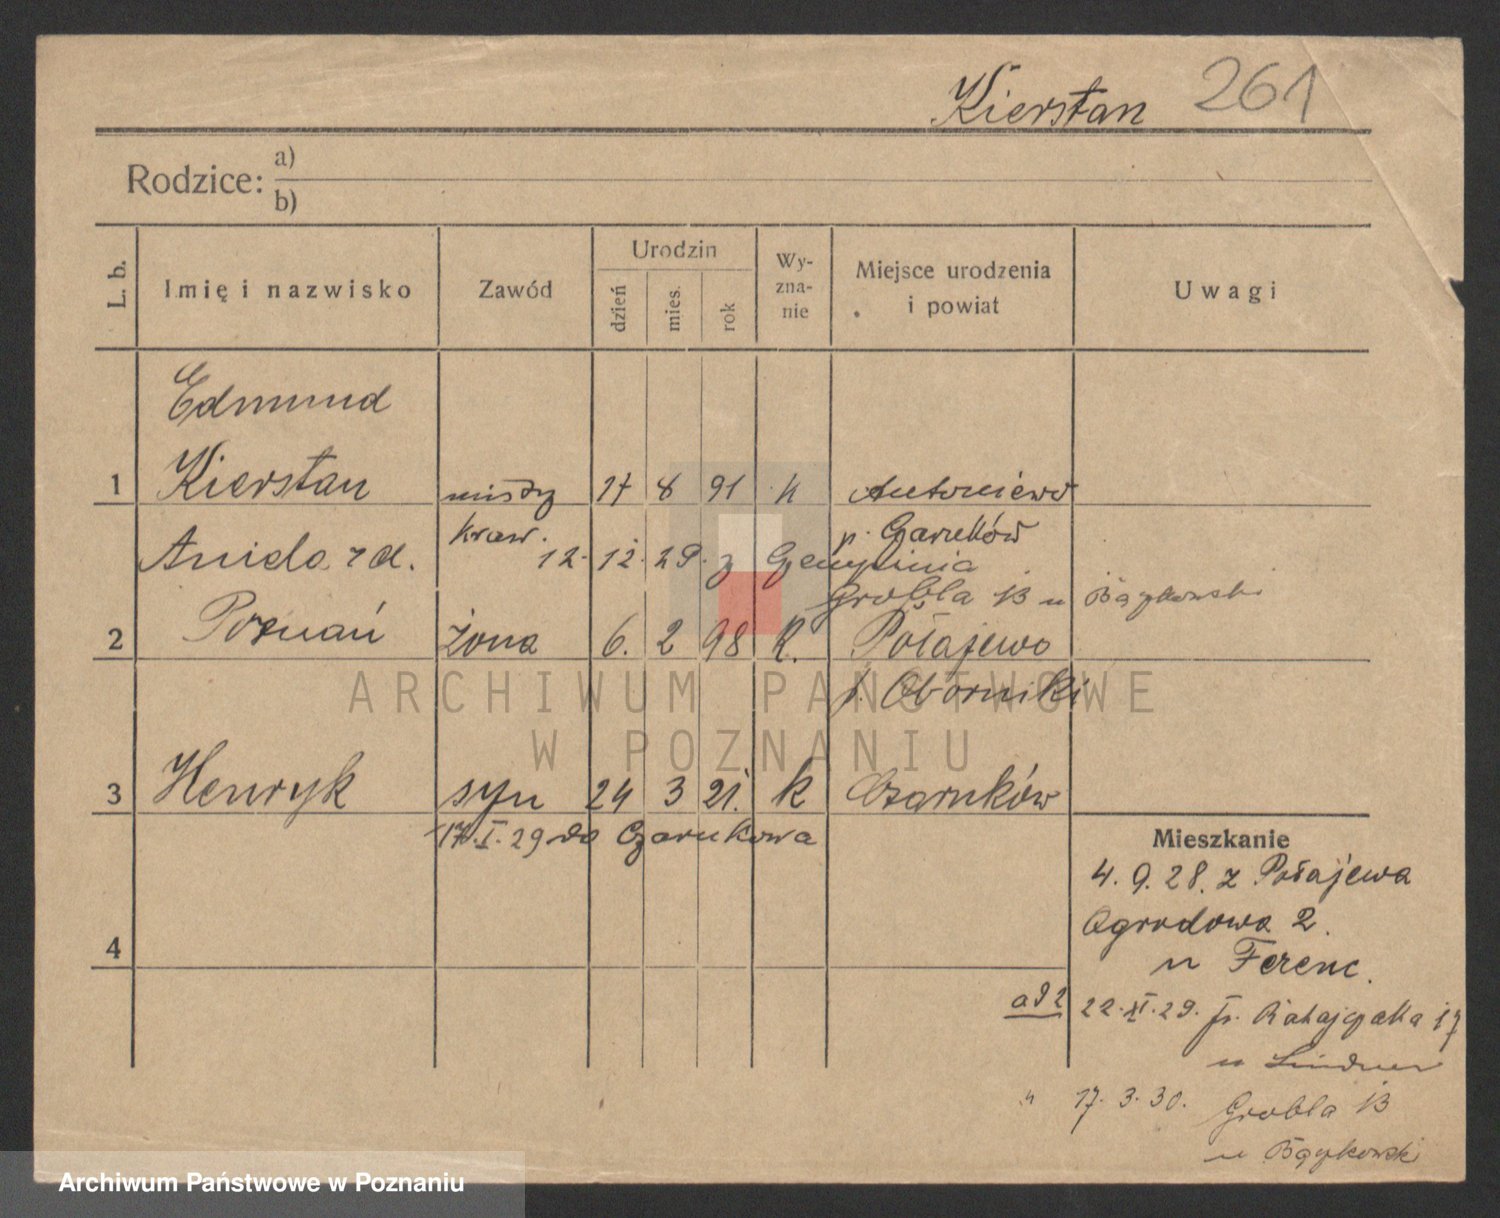 Kierstan 261
Rodzice: a)
b)
L. b. Imię i nazwisko Zawód Urodzin dzień mies. rok Wy-zna-nie Miejsce urodzenia i powiat Uwagi
Edmund
1 Kierstan 17 8 91 k Antoniewo
kraw. p. Czarnków
Aniela z d. 12. 12. 29. z
Grobla 13 u Bączkowski
2 Poznań żona 6. 2 98 k. Połajewo
p. Oborniki
3 Henryk syn 24 3 21. k Czarnków
17.I.29 do Czarnkowa
Mieszkanie
4. 9. 28. z Połajewa
4 Ogrodowa 2.
u Ferenc.
ad 2 22.XI.29. Fr. Ratajczaka 17
u Lindner
" 17. 3. 30. Grobla 13
u Bączkowski
ARCHIWUM PAŃSTWOWE
W POZNANIU
Archiwum Państwowe w Poznaniu